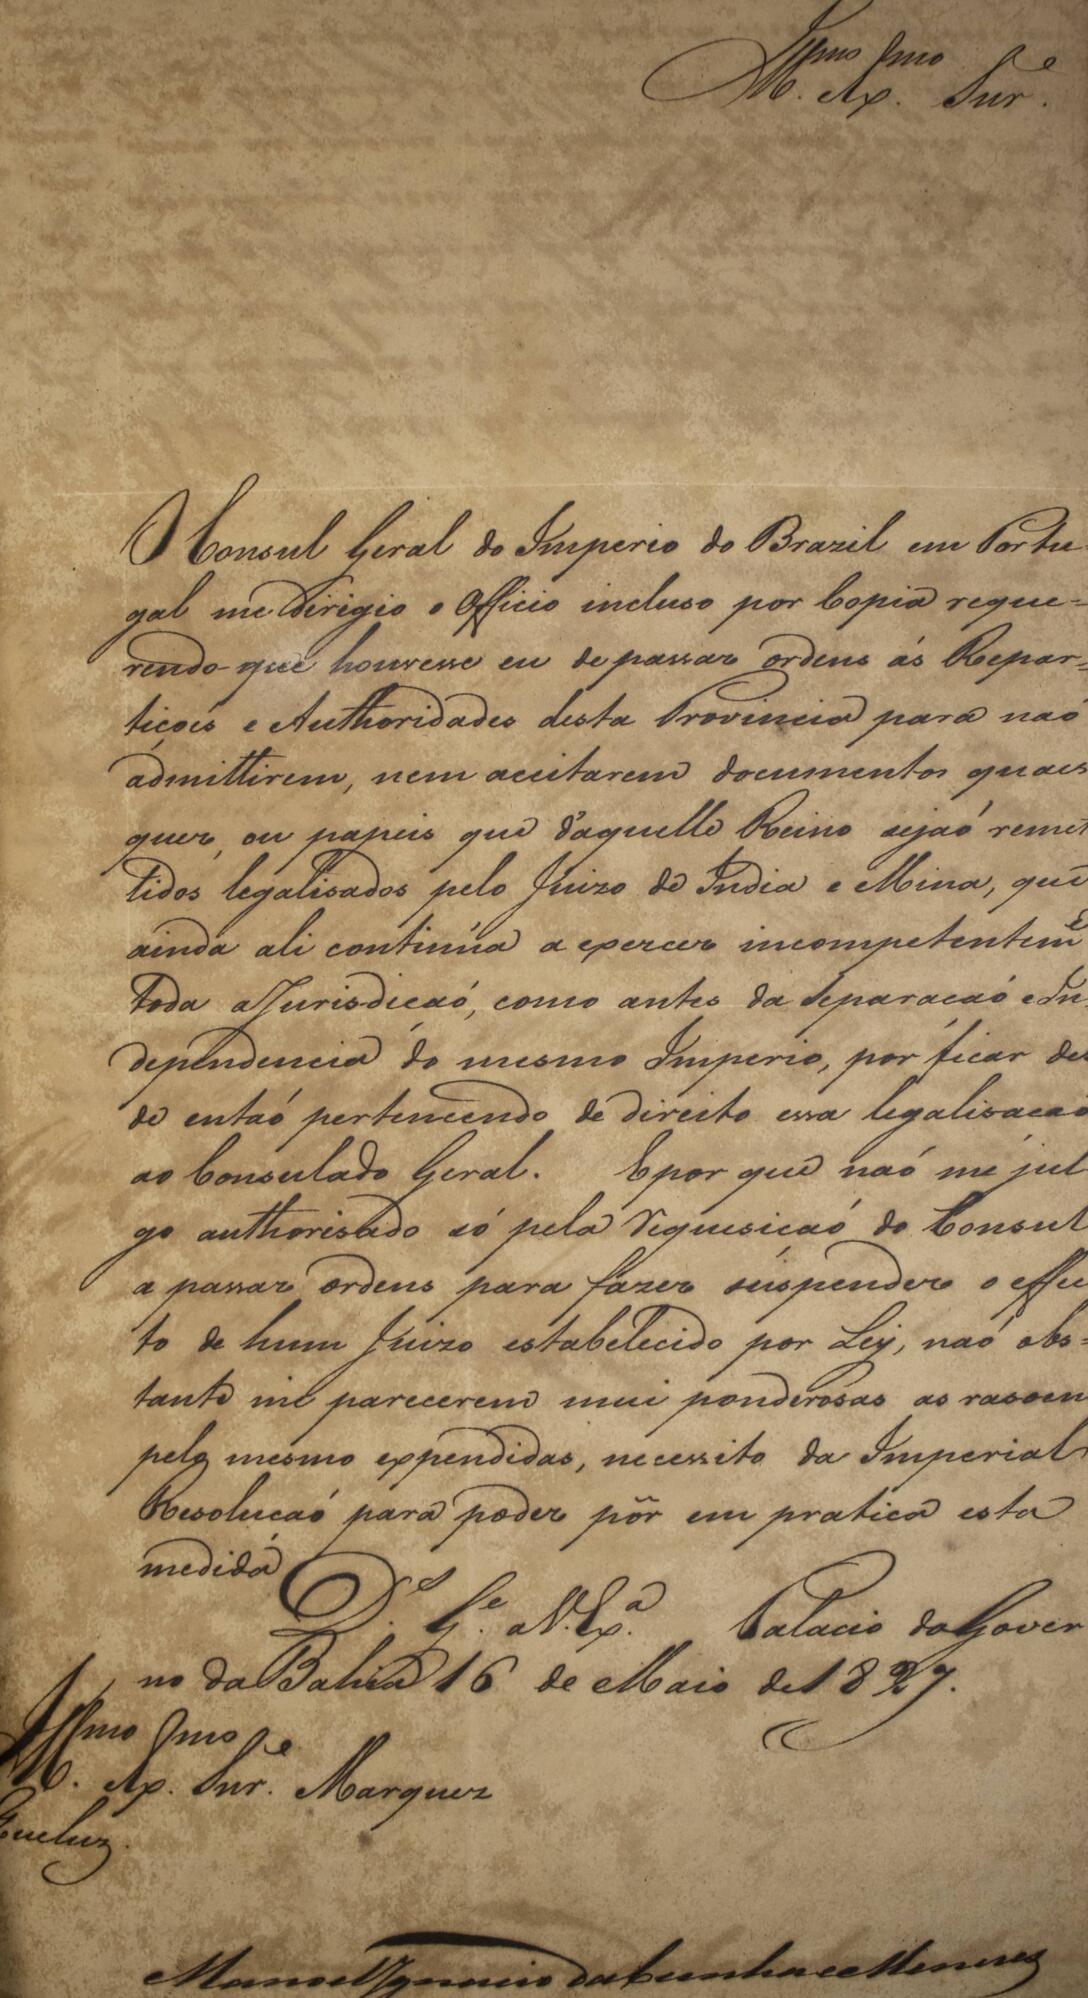 Illmo Exmo Snr.e
O Consul Geral do Imperio do Brazil em Portu-
gal me dirigio o Officio incluso por Copia reque=
rendo que houvesse eu de passar ordens ás Repar=
ticoẽs e Authoridades desta Provincia para naõ
admittirem, nem aceitarem documentos quaes
quer, ou papeis que d'aquelle Reino sejaõ remet
tidos legalisados pelo Juizo de India e Mina, que
ainda ali continúa a exercer incompetentem.e
toda a Jurisdicaõ, como antes da Separacaõ e In
dependencia do mesmo Imperio, por ficar des
de entaõ pertencendo de direito essa legalisacaõ
ao Consulado Geral. E por que naõ me jul
go authorisado só pela requesicaõ do Consul
a passar ordens para fazer suspender o effei
to de hum Juizo estabelecido por Ley, naõ obs=
tante me parecerem mui ponderosas as rasoens
pelo mesmo expendidas, necessito da Imperial
Resolucaõ para poder pôr em pratica esta
medida
D.s G.e a V. Ex.a Palacio do Gover
no da Bahia 16 de Maio de 1827.
Illmo Exmo Snr.e Marquez
Queluz.
Manoel Ignacio da Cunha e Menezes